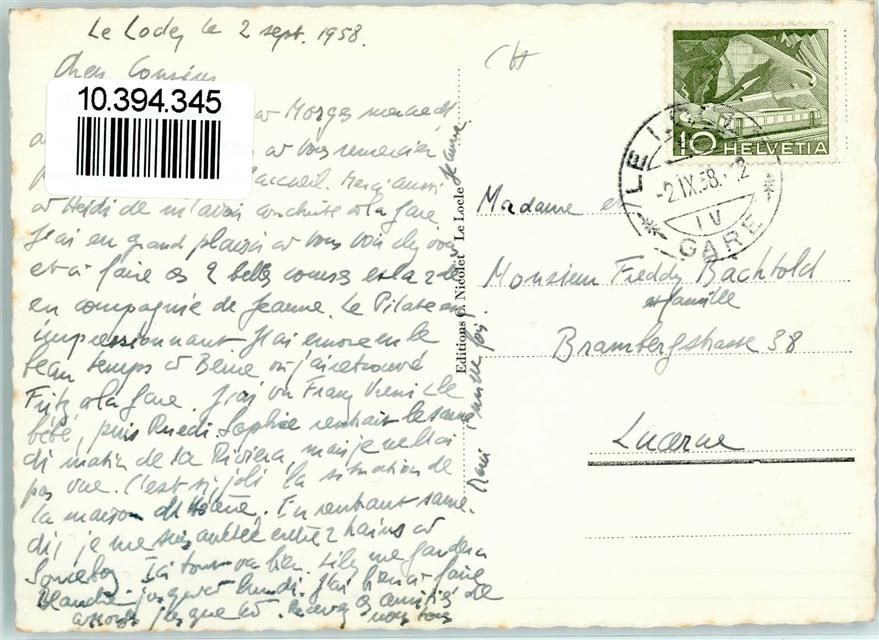 Le Locle, le 2 sept. 1958.
Chers Cousins
10.394.345
à Morges mercredi
à vous remercier
l'accueil. Merci aussi
à Heidi de m'avoir conduite à la gare
J'ai eu grand plaisir à vous voir
et à faire ces 2 belles courses
en compagnie de Jeanne. Le Pilate
impressionnant. J'ai encore eu le
beau temps à Berne où j'ai retrouvé
Fritz à la gare. J'ai vu Franz Vreni et le
bébé, puis Ruedi. Sophie rentrait le same
di matin de la Riviera, mais je ne l'ai
pas vue. C'est si joli la situation de
la maison d'Hélène. En rentrant same
di, je me suis arrêtée entre 2 trains à
Sonceboz. Ici tout va bien. Lily me gardera
Blanche jusqu'à lundi. J'ai bien à faire
Recevez les amitiés de
nous tous
Jeanne
Merci
Editions C. Nicolet Le Locle
CH
10 HELVETIA
LE LOCLE
-2.IX.58.-12
IV
GARE
Madame et
Monsieur Freddy Bachtold
et famille
Brambergstrasse 38
Lucerne